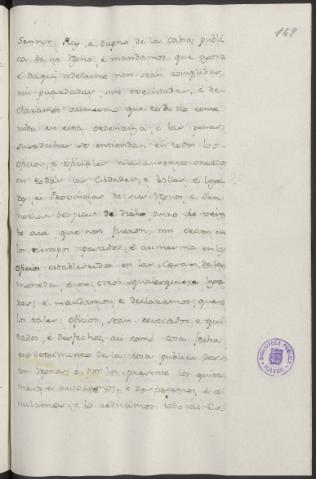 169
Sennor, Rey, e dapno de la cosa públi-
ca, de su Regno, é mandamos, que agora
é daqui adelante non sean complidas,
nin guardadas, nin executadas, é de-
claramos asimesmo que todo lo conte-
nido en esta ordenanza, é las penas
susodichas se entiendan en todos los
oficios, é oficiales nuevamente criados
en todas las Cibdades, é Villas, é Loga-
res, é Provincias de sus Regnos, é Sen-
norios despues de dicho anno de vein-
te acá que non fueron, nin eran en
los tiempos pasados, é asimesmo en los
oficios establecidos en las Casas de la
moneda, é en otros qualesquiera loga-
res; é mandamos, é declaramos, que
los tales oficios, sean revocados é qui-
tados, é desfechos, asi como cosa fecha
en detrimento de la cosa pública destos
Regnos, é por la presente los quita-
mos, é revocamos, é desfacemos, é a-
nulamos, é la reducimos todo al es-
BIBLIOTECA PUBLICA
TOLEDO